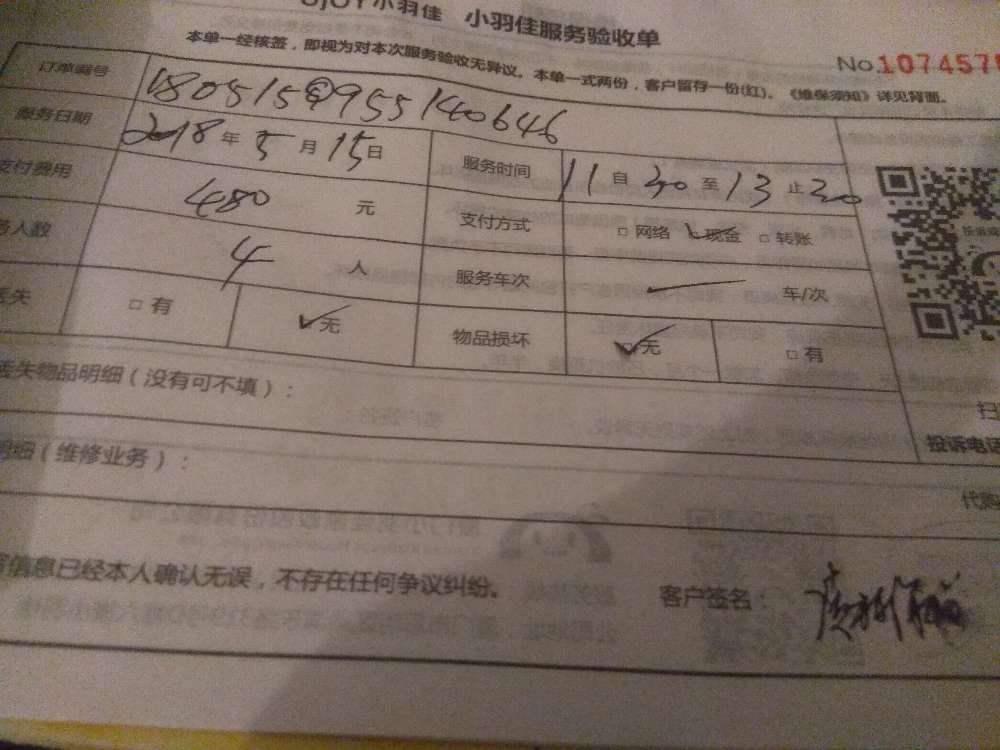 小羽佳 小羽佳服务验收单
本单一经核签，即视为对本次服务验收无异议。本单一式两份，客户留存一份(红)。《维保须知》详见背面。
No.107457
订单编号 180515@955140646
服务日期 2018年5月15日 服务时间 11自30至13止30
支付费用 480 元 支付方式 □网络 ✓现金 □转账
人数 4 人 服务车次 — 车/次
丢失 □有 ✓无 物品损坏 ✓无 □有
丢失物品明细（没有可不填）：
投诉电话
明细（维修业务）：
信息已经本人确认无误，不存在任何争议纠纷。 客户签名：